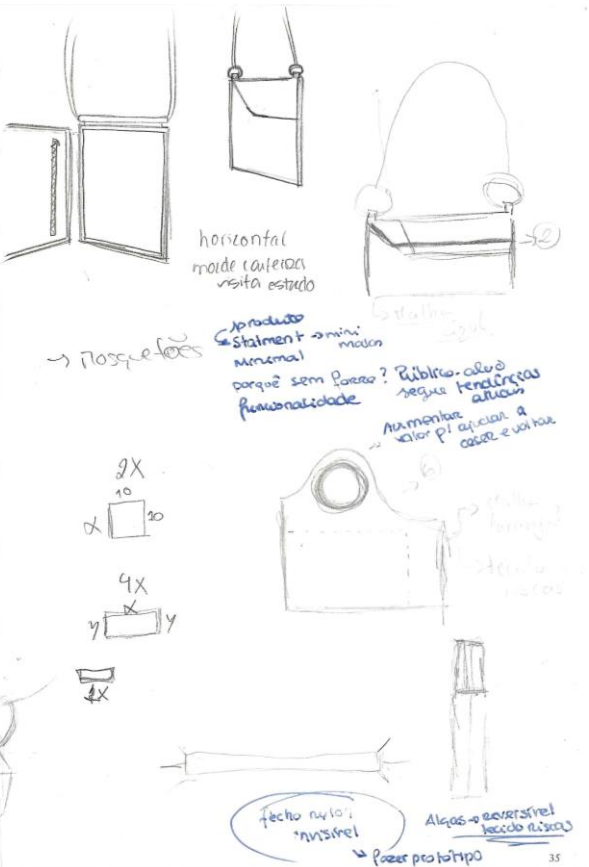 horizontal
molde carteira
visita estudo
→ Mosquetões
produto
Statment → mini malas
minimal
porquê sem forro? Público-alvo
segue tendências
atuais
funcionalidade
Aumentar
valor p/ ajudar a
coser e voltar
→ 2)
b)
2X
10
α 10
4X
α
y y
2X
fecho nylon
invisível
Alças → reversível
tecido riscas
↳ fazer protótipo
35